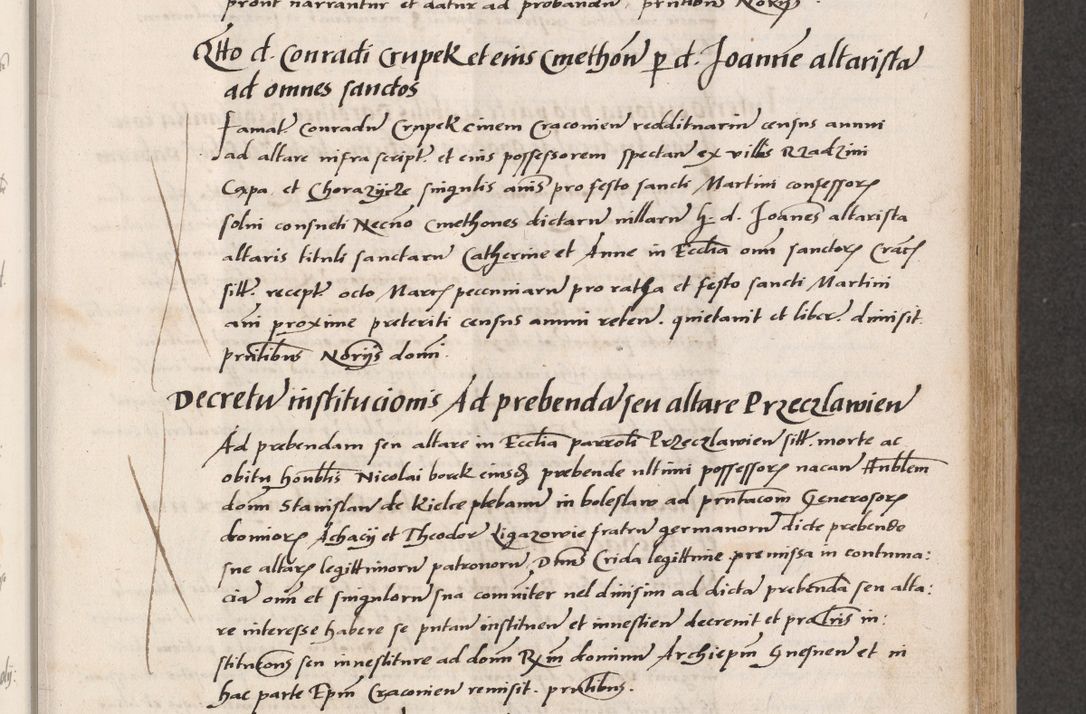 pront narrantur et datur ad probanden. prntibus Norijs
Qtto d. Conradi Crupek et eius Cmethon p d. Joanne altarista
ad omnes sanctos
Famat. Conradu Crupek civem Cracouien reddituariu census annui
ad altare infra script. et eius possessorem spectan ex villis Rzadzini
Capa et Chorazycze singulis annis pro festo sancti Martini confessor
solui consueti Necno Cmethones dictaru villaru h. d. Joanes altarista
altaris tituli sanctaru Catherine et Anne in Ecclia oim sanctor Crac
sitt. recept. octo Marc pecuniaru pro ratha et festo sancti Martini
ani proxime preteriti census annui reten. quietauit et liber. dimisit
prntibus Norijs domi.
Decretu institucionis Ad prebenda seu altare Przeczlawien
Ad prebendam seu altare in Ecclia parroli Przeczlawien sitt. morte ac
obitu honblis Nicolai borek eiusq prebende ultimi possessor vacan Hnblem
domi Stanislau de Kielce plebanu in boleslaw ad prntacom Generosor
dominor Achacij et Theodor Ligazowie fratru germanoru dicte prebende
sue altar legittimoru patronoru, Dtus Crida legittime premissa in contuma:
cia oim et singuloru sua comuniter vel diuisim ad dicta prebenda seu alta:
re interesse habere se putan instituen et inuestien decreuit et pro lris in:
stitutions seu inuestiture ad domi Rm dominu Archiepm Gnesnen et in
hac parte Epm Cracouien remisit. prntibus.